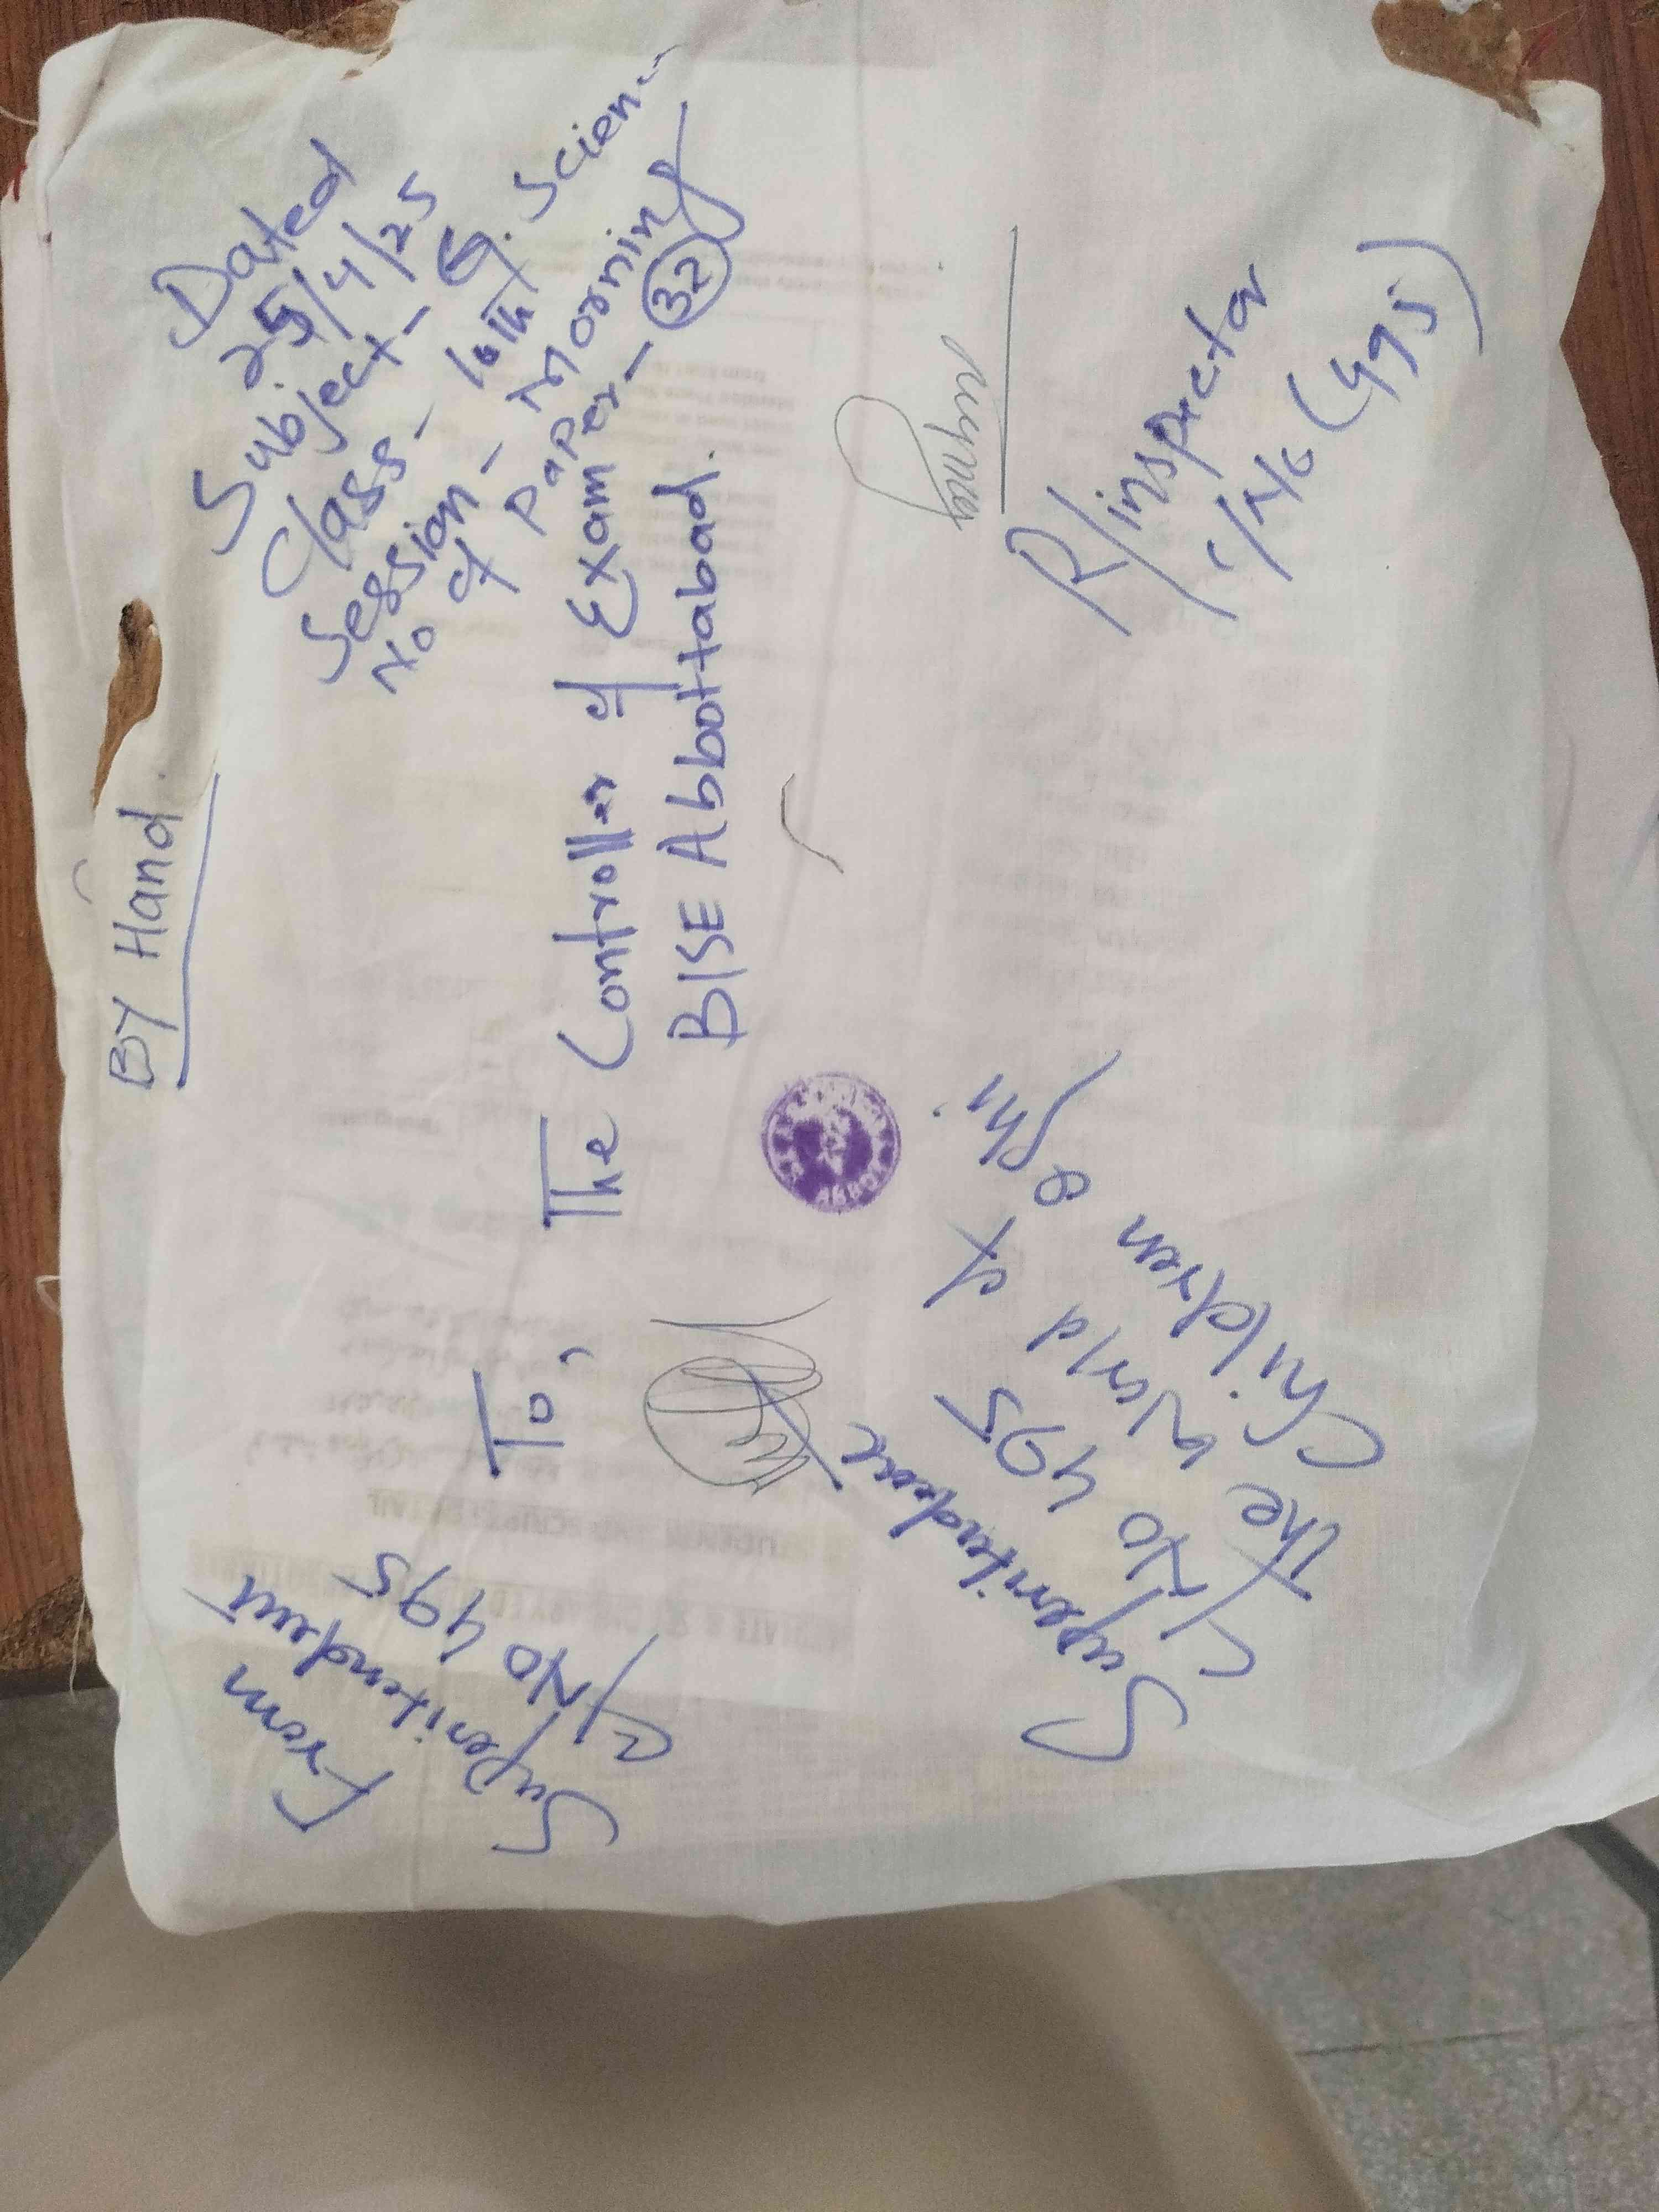 BY Hand
Dated
25/4/25
Subject- G. Scien
Class- 10th
Session- Morning
No of Paper- 32
From
Superitendent
C/No 495
To,
The Controller of Exam
BISE Abbottabad.
Superitendent
C/No 495
the World of
Children
R/inspector
C/No (495)